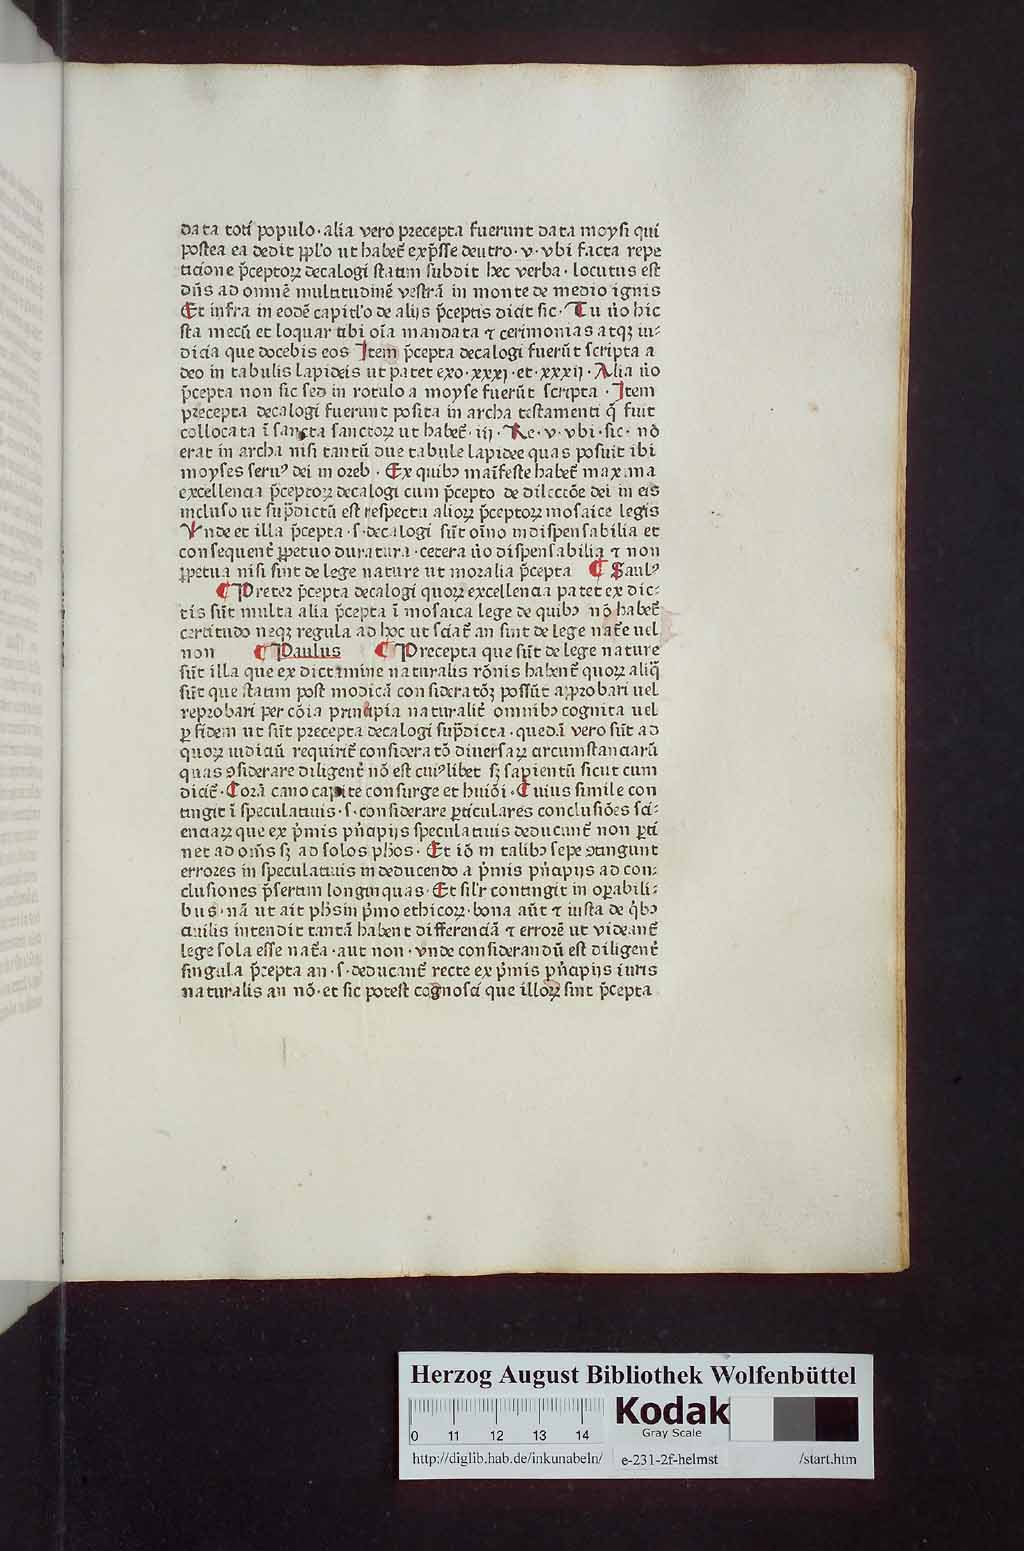 data toti populo · alia vero precepta fuerunt data moysi qui
postea ea dedit pp̄lo ut habet᷑ exp̄sse deutro · v · vbi facta repe
ticione p̄ceptoꝝ decalogi statim subdit hec verba · locutus est
dn̄s ad omnē multitudinē vestrā in monte de medio ignis
Et infra in eodē capitl̓o de alijs p̄ceptis dicit sic · Tu ūo hic
sta mecū et loquar tibi oīa mandata ⁊ cerimonias atqꝫ iu⸗
dicia que docebis eos Item p̄cepta decalogi fuerūt scripta a
deo in tabulis lapideis ut patet exo · xxxj · et · xxxij · Alia ūo
p̄cepta non sic sed in rotulo a moyse fuerūt scripta · Item
precepta decalogi fuerunt posita in archa testamenti q̄ fuit
collocata ī sancta sanctoꝝ ut habet᷑ · iij · Re · v · vbi · sic · nō
erat in archa nisi tantū due tabule lapidee quas posuit ibi
moyses seruꝰ dei in oreb · Ex quibꝫ maīfeste habet᷑ maxima
excellencia p̄ceptoꝝ decalogi cum p̄cepto de dilectōe dei in eis
incluso ut sup̄dictū est respectu alioꝝ p̄ceptoꝝ mosaice legis
Vnde et illa p̄cepta · s · decalogi sūt oīno indispensabilia et
consequent᷑ ꝑpetuo duratura · cetera ūo dispensabilia ⁊ non
ꝑpetua nisi sint de lege nature ut moralia p̄cepta ¶ Saulꝰ
¶ Preter p̄cepta decalogi quoꝝ excellencia patet ex dic⸗
tis sūt multa alia p̄cepta ī mosaica lege de quibꝫ nō habet᷑
certitudo neqꝫ regula ad hoc ut sciat᷑ an sint de lege nat᷑e uel
non ¶ Paulus ¶ Precepta que sūt de lege nature
sūt illa que ex dictamine naturalis rōnis habent᷑ quoꝝ aliq̄
sūt que statim post modicā consideratōꝫ possūt approbari uel
reprobari per cōia principia naturalit᷑ omnibꝫ cognita uel
ꝑ fidem ut sūt precepta decalogi sup̄dicta · quedā vero sūt ad
quoꝝ iudiciū requirit᷑ consideratō diuersaꝝ circumstanciarū
quas ꝯsiderare diligent᷑ nō est cuiꝰlibet sꝫ sapientū sicut cum
dicit᷑ · Corā cano capite consurge et huiōi · Cuius simile con
tingit ī speculatiuis · s · considerare ꝑticulares conclusiōes sci⸗
enciaꝝ que ex p̓mis pn̓cipijs speculatiuis deducunt᷑ non ꝑti
net ad om̄s sꝫ ad solos ph̓os · Et iō in talibꝫ sepe ꝯtingunt
errores in speculatiuis in deducendo a p̓mis pn̓cipijs ad con⸗
clusiones p̄sertim longinquas · Et sil̓r contingit in oꝑabili⸗
bus · nā ut ait ph̓s in p̓mo ethicoꝝ · bona aūt ⁊ iusta de q̓bꝫ
ciuilis intendit tantā habent differenciā ⁊ errorē ut videant᷑
lege sola esse nat᷑a · aut non · vnde considerandū est diligent᷑
singula p̄cepta an · s · deducant᷑ recte ex p̓mis pn̓cipijs iuris
naturalis an nō · et sic potest cognosci que illoꝝ sint p̄cepta
Herzog August Bibliothek Wolfenbüttel
0 11 12 13 14
Kodak
Gray Scale
http://diglib.hab.de/inkunabeln/ e-231-2f-helmst /start.htm